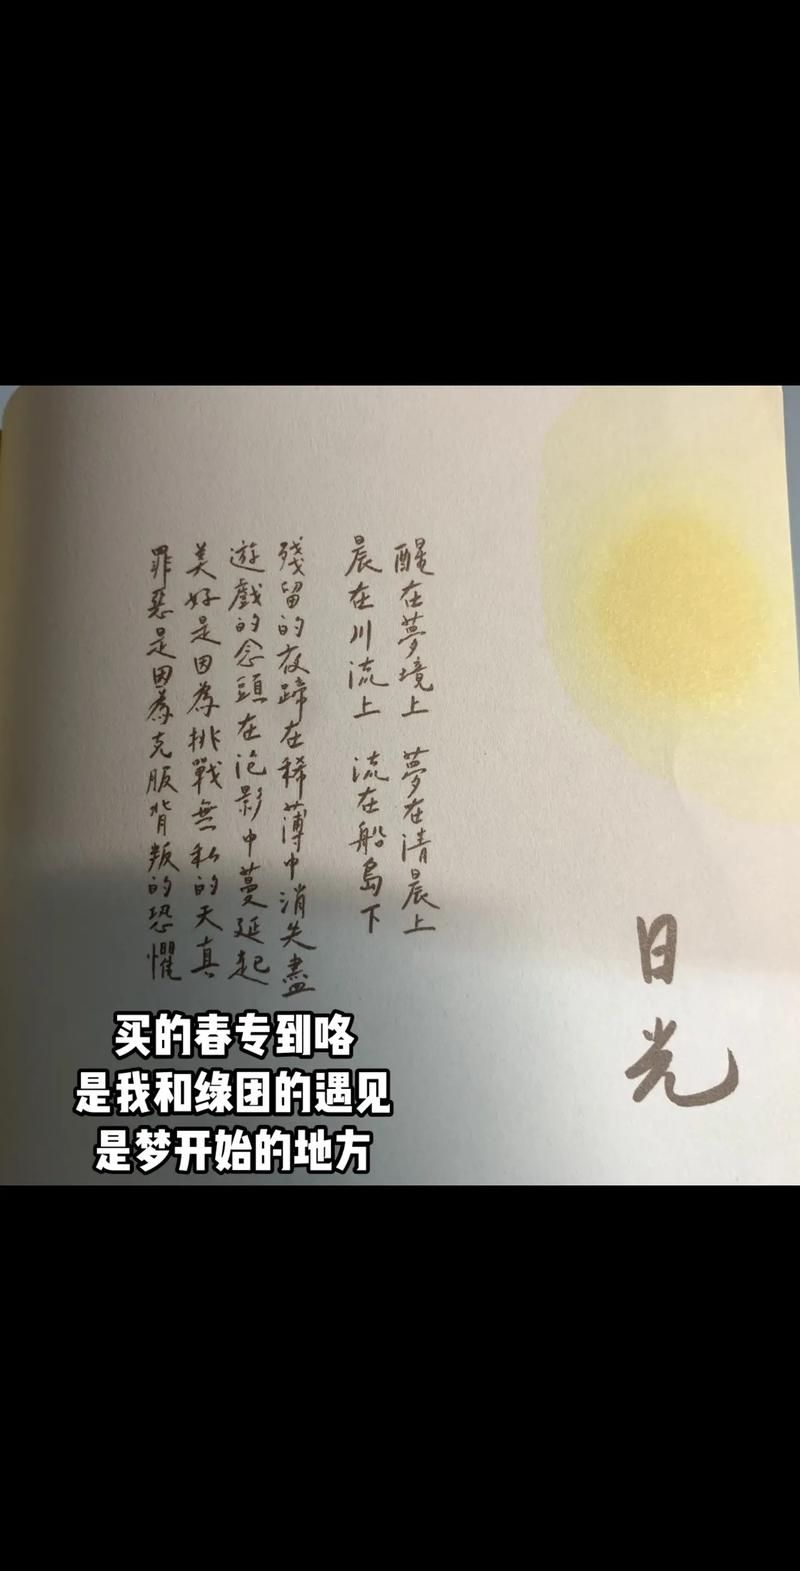 日光
醒在夢境上 夢在清晨上
晨在川流上 流在船島下
殘留的夜蹄在稀薄中消失盡
遊戲的念頭在泡影中蔓延起
美好是因為挑戰無私的天真
罪惡是因為克服背叛的恐懼
买的春专到咯
是我和绿团的遇见
是梦开始的地方